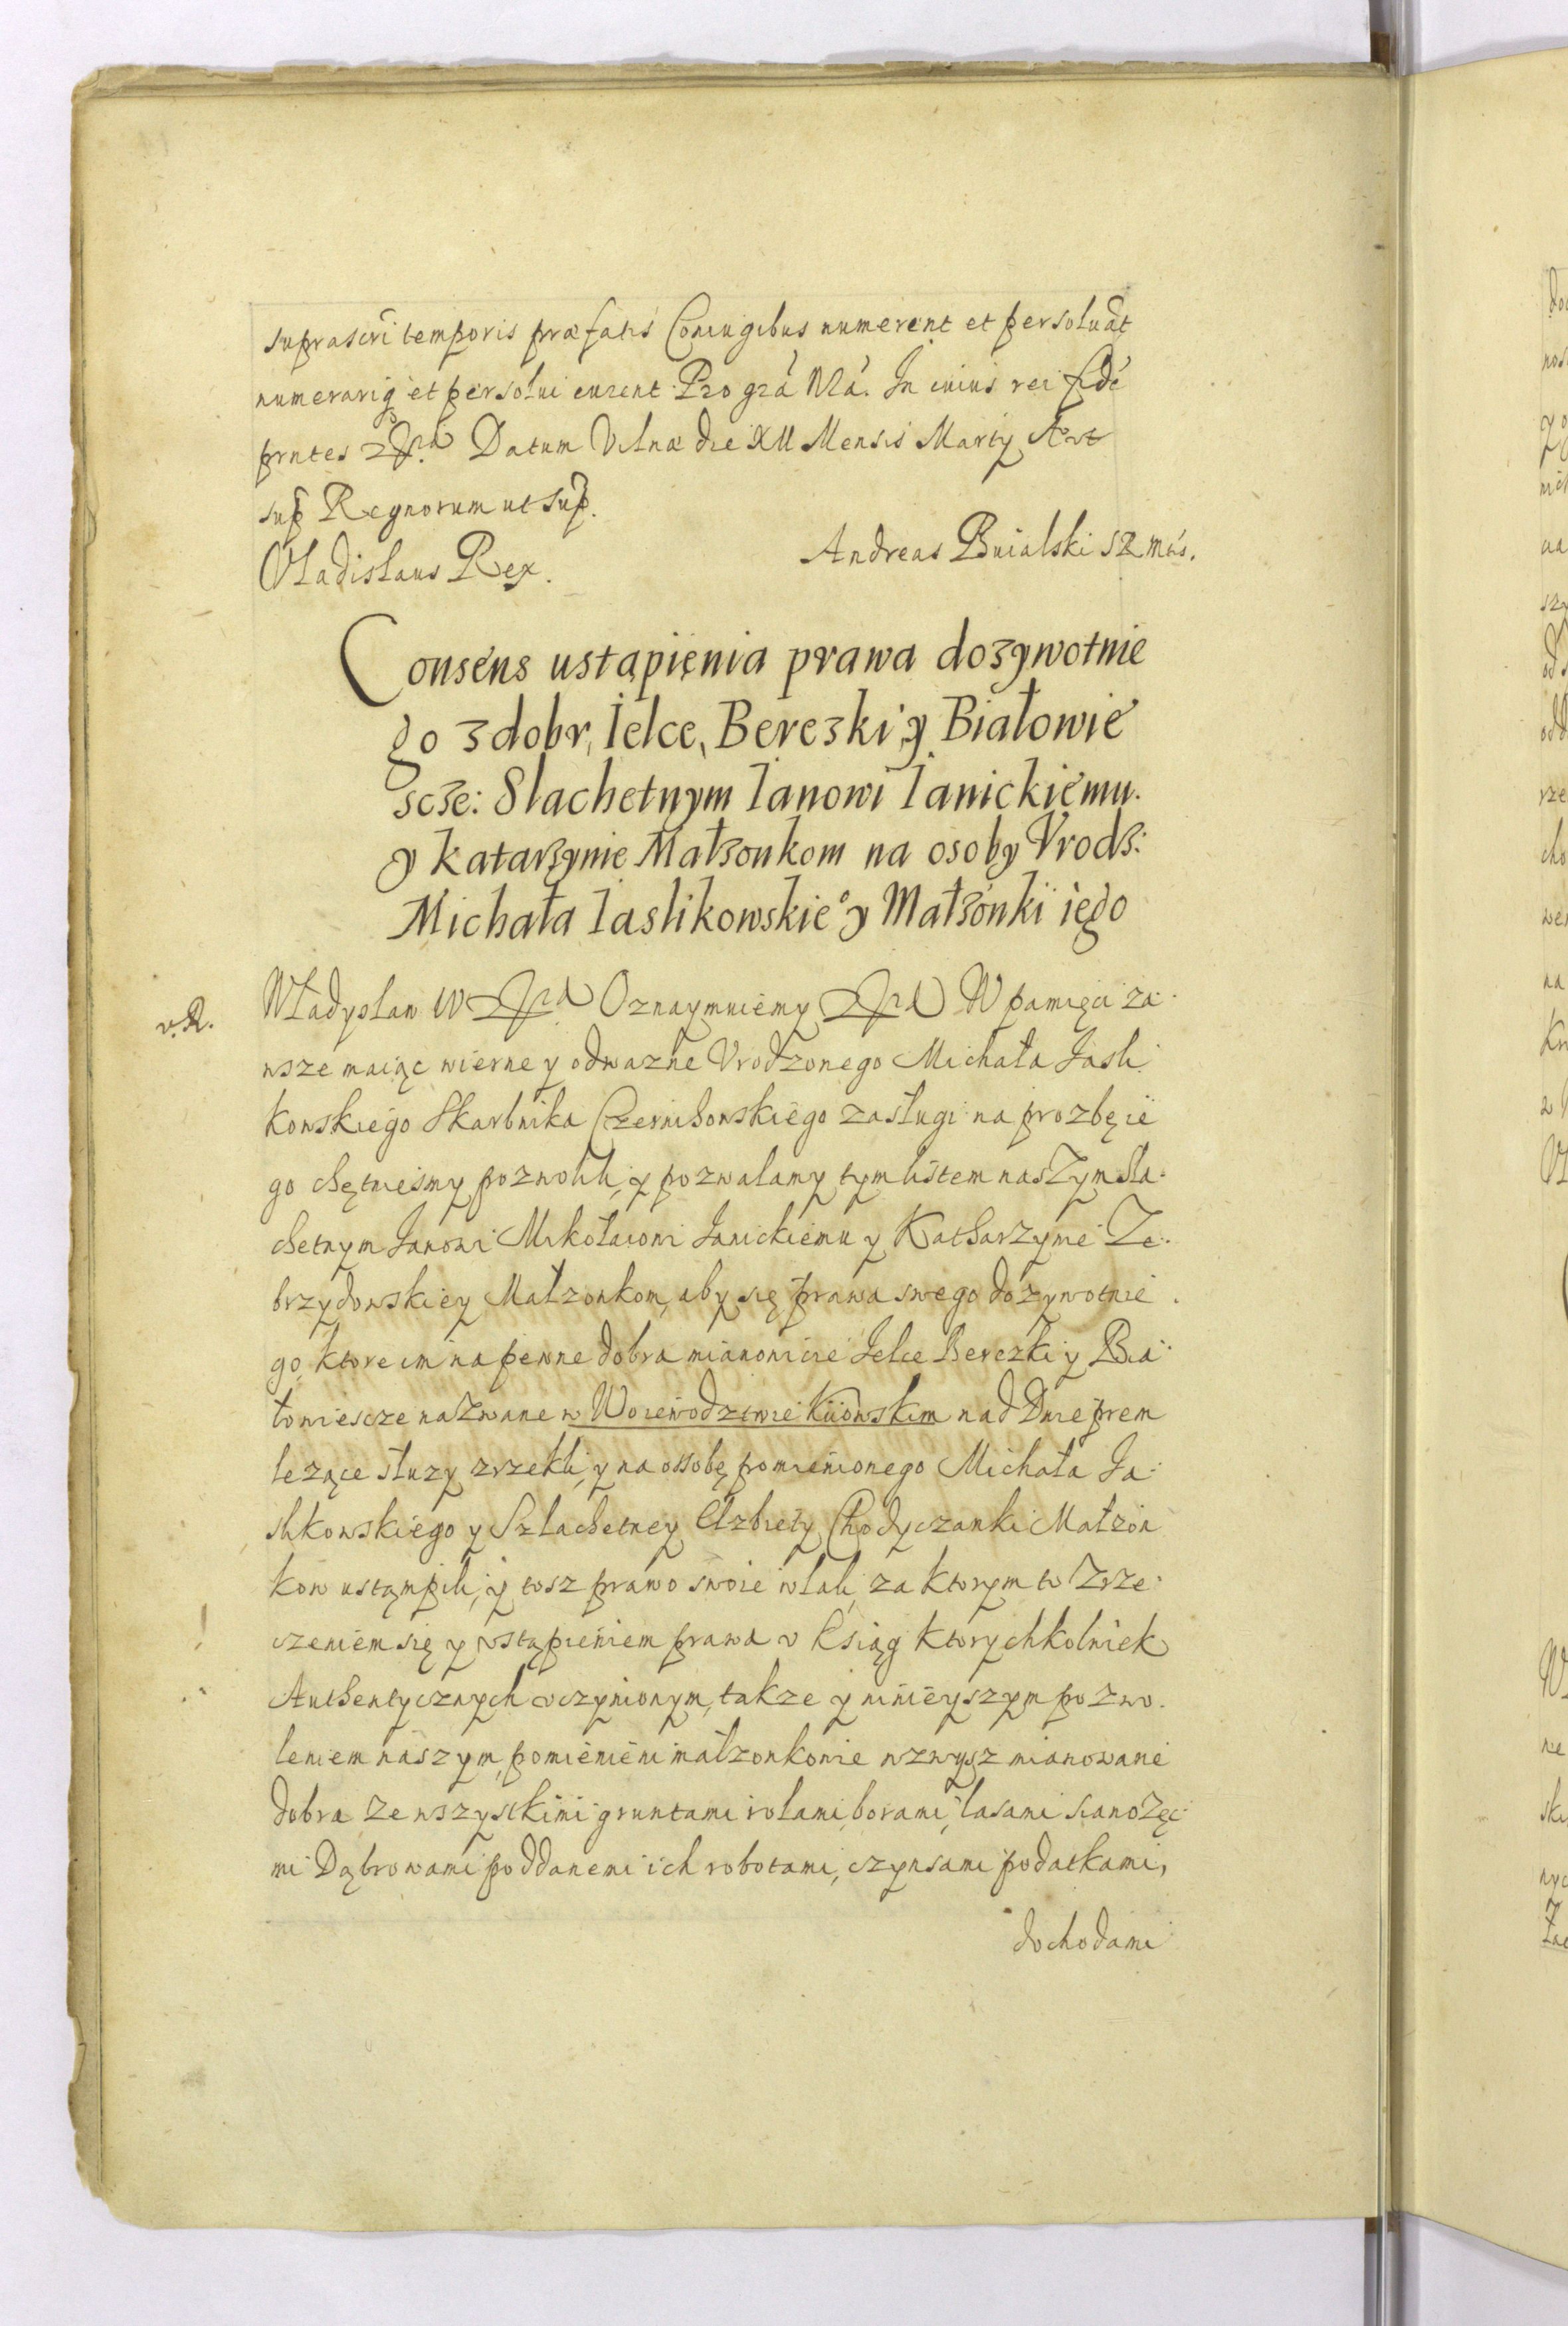 suprascri temporis præfatis Coniugibus numerent et persoluāt
numerariq et persolui curent. Pro gra Nrā. In cuius rei fidē
prntes Datum Vilnæ die XII Mensis Marty A
sup Regnorum ut sup.
Vladislaus Rex. Andreas Buialski
Consens ustąpięnia prawa dozywotnie
go z dobr, Ielce, Berezki, y Białowie
scze: Slachetnym Ianowi Ianickiemu.
y Katarzynie Małzonkom na osoby Vrodz:
Michała Iaslikowskie° y Małzonki iego
v.R. Władysław IV Oznaymuiemy W pamięci za-
wsze maiąc wierne y odwazne Vrodzonego Michała Jasli
kowskiego Skarbnika Czernihowskiego zasługi na prozbę ie
go chętniesmy pozwolili, y pozwalamy tym listem naszym Sla-
chetnym Janowi Mikołaiowi Janickiemu y Katharzynie Ze-
brzydowskiey Małzonkom, aby się prawa swego dozywotnie
go, ktore im na pewne dobra mianowicie Jelce Berezki y Bia-
łowiescze nazwane w Woiewodztwie Kiiowskim nad Dnieprem
lezące słuzy zrzekli, y na ossobę pomienionego Michała Ja-
slikowskiego y Szlachetney Elzbiety Chodyczanki Małzon
kow ustąmpili, y tosz prawo swoie wlali, za ktorym to Zrze-
czeniem się y vstąpieniem prawa v Ksiąg ktorychkolwiek
Authentycznych vczynionym, takze y ninieyszym pozwo-
leniem naszym, pomienieni małzonkowie wzwysz mianowane
dobra ze wszystkimi gruntami rolami, borami, lasami sianozęć
mi Dąbrowami poddanemi ich robotami, czynsami podatkami,
dochodami